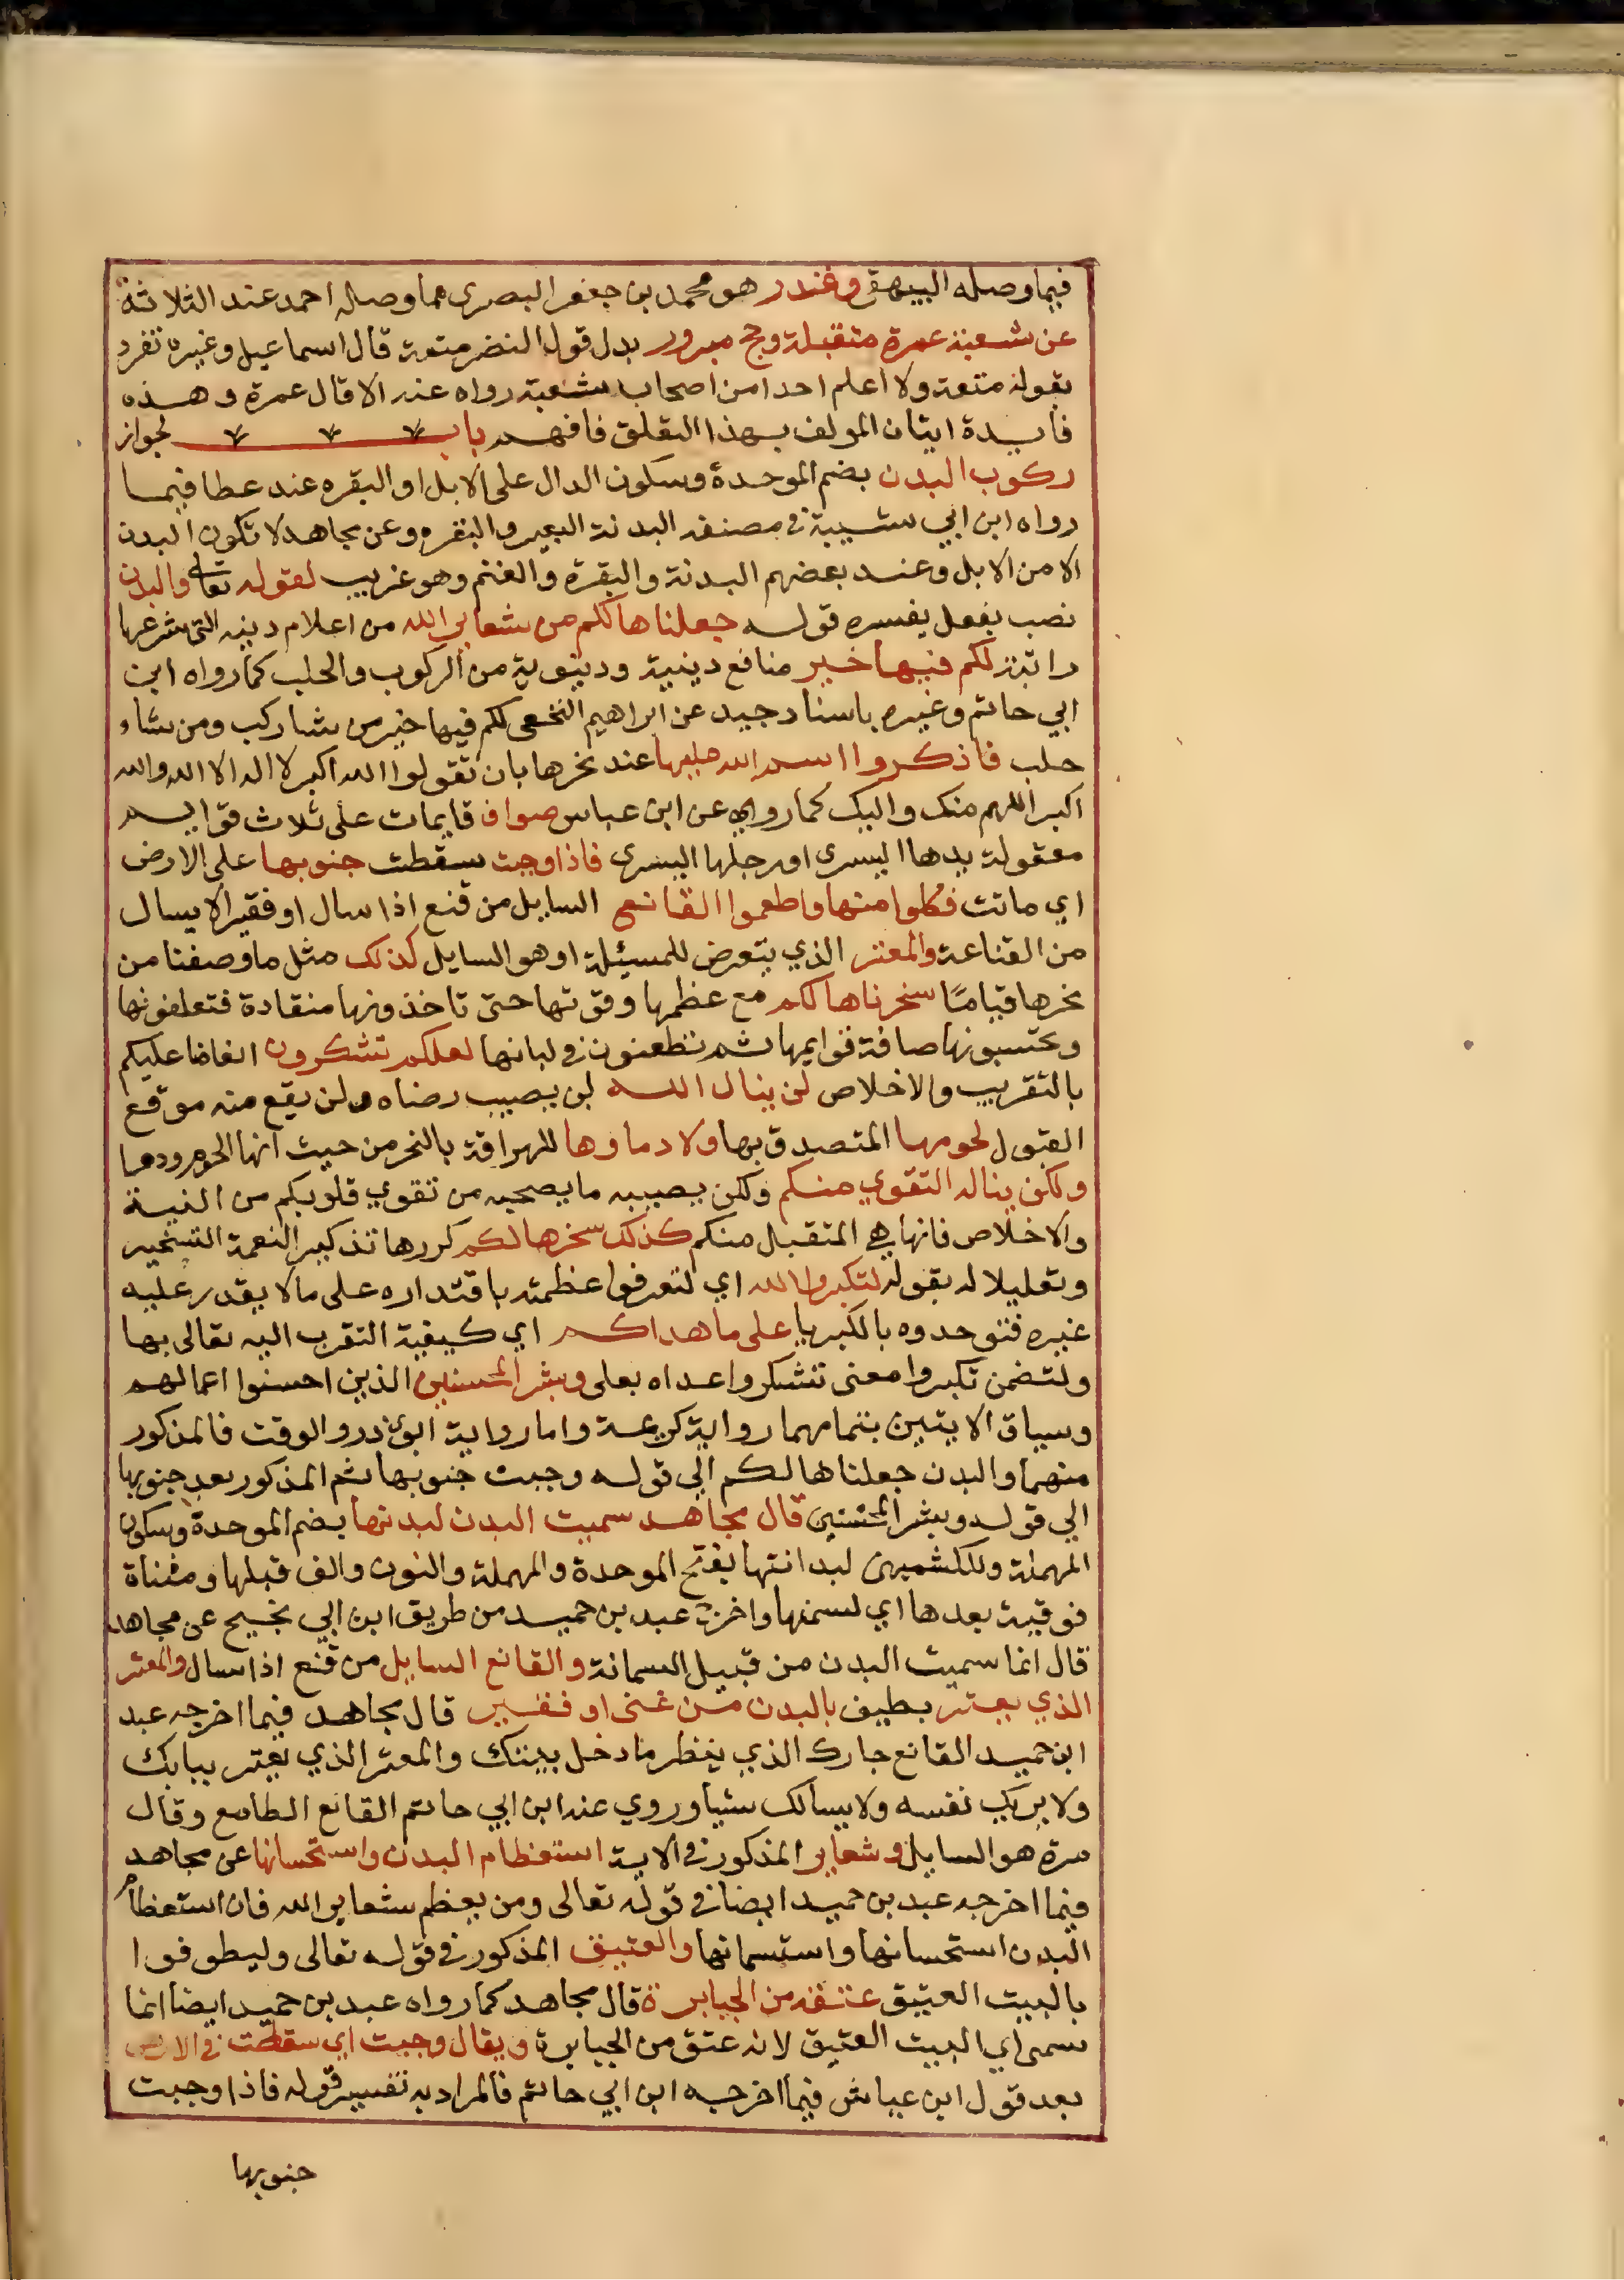 فيما وصله البيهقي وغندر هو محمد بن جعفر البصري مما وصله احمد عند الثلاثة
عن شعبة عمرة متقبلة وحج مبرور بدل قول النضر متعة قال اسماعيل وغيره تفرد
بقوله متعة ولا اعلم احدا من اصحاب شعبة رواه عنه الا قال عمرة وهذه
فايدة اتيان المولف بهذا التعلق فافهم باب لجواز
ركوب البدن بضم الموحدة وسكون الدال على الابل او البقره عند عطا فيما
رواه ابن ابي شيبة في مصنفه البدنة البعير والبقره وعن مجاهد لا تكون البدن
الا من الابل وعند بعضهم البدنة والبقرة والغنم وهو غريب لقوله تعالى والبدن
نصب بفعل يفسره قوله جعلناها لكم من شعاير الله من اعلام دينه التي شرعها
راتبة لكم فيها خير منافع دينية ودينوية من الركوب والحلب كما رواه ابن
ابي حاتم وغيره باسناد جيد عن ابراهيم النخعي لكم فيها خير من شا ركب ومن شاء
حلب فاذكروا اسم الله عليها عند نحرها بان تقولوا الله اكبر لا اله الا الله والله
اكبر اللهم منك واليك كما روي عن ابن عباس صواف قايمات على ثلاث قوايم
معقولة يدها اليسرى او رجلها اليسرى فاذا وجبت سقطت جنوبها على الارض
اي ماتت فكلوا منها واطعموا القانع السايل من قنع اذا سال او فقيرا لا يسال
من القناعة والمعتر الذي يتعرض للمسئلة او هو السايل كذلك مثل ما وصفنا من
نحرها قياما سخرناها لكم مع عظمها وقوتها حتى تاخذونها منقادة فتعلفونها
وتحتسبونها صافة قوايمها ثم تطعنون في لبانها لعلكم تشكرون انعامنا عليكم
بالتقريب والاخلاص لن ينال الله لن يصيب رضاه ولن يقع منه موقع
القبول لحومها المتصدق بها ولا دماوها المهراقة بالنحر من حيث انها لحوم ودما
ولكن يناله التقوي منكم ولكن يصيبه ما يصحبه من تقوي قلوبكم من النية
والاخلاص فانها هي المتقبل منكم كذلك سخرها لكم كررها تذكيرا لنعمة التسخير
وتعليلا له بقوله لتكبروا الله اي لتعرفوا عظمته باقتداره على مالا يقدر عليه
غيره فتوحدوه بالكبريا على ما هداكم اي كيفية التقرب اليه تعالى بها
ولتضمن تكبروا معنى تشكروا عداه بعلى وبشر المحسنين الذين احسنوا اعمالهم
وسياق الايتين بتمامهما رواية كريمة واما رواية ابوي ذر والوقت فالمذكور
منهما والبدن جعلناها لكم الي قوله وجبت جنوبها ثم المذكور بعد جنوبها
الي قوله وبشر المحسنين قال مجاهد سميت البدن لبدنها بضم الموحدة وسكون
المهملة وللكشميهني لبدانتها بفتح الموحدة والمهملة والنون والف قبلها ومثناة
فوقية بعدها اي لسمنها واخرج عبد بن حميد من طريق ابن ابي نجيح عن مجاهد
قال انما سميت البدن من قبيل السمانة والقانع السايل من قنع اذا سال والمعتر
الذي يعتر يطيف بالبدن من غنى او فقير قال مجاهد فيما اخرجه عبد
ابن حميد القانع جارك الذي ينظر ما دخل بيتك والمعتر الذي يعتر ببابك
ولا يريك نفسه ولا يسالك شيا وروي عنه ابن ابي حاتم القانع الطامع وقال
مرة هو السايل وشعاير المذكور في الاية استعظام البدن واستحسانها عن مجاهد
فيما اخرجه عبد بن حميد ايضا في قوله تعالى ومن يعظم شعاير الله فان استعظام
البدن استحسانها واستسمانها والعتيق المذكور في قوله تعالى وليطوفوا
بالبيت العتيق عتقه من الجبابرة قال مجاهد كما رواه عبد بن حميد ايضا انما
سمي اي البيت العتيق لانه عتق من الجبابرة ويقال وجبت اي سقطت في الارض
بعد قول ابن عباس فيما اخرجه ابن ابي حاتم فالمراد به تفسير قوله فاذا وجبت
جنوبها